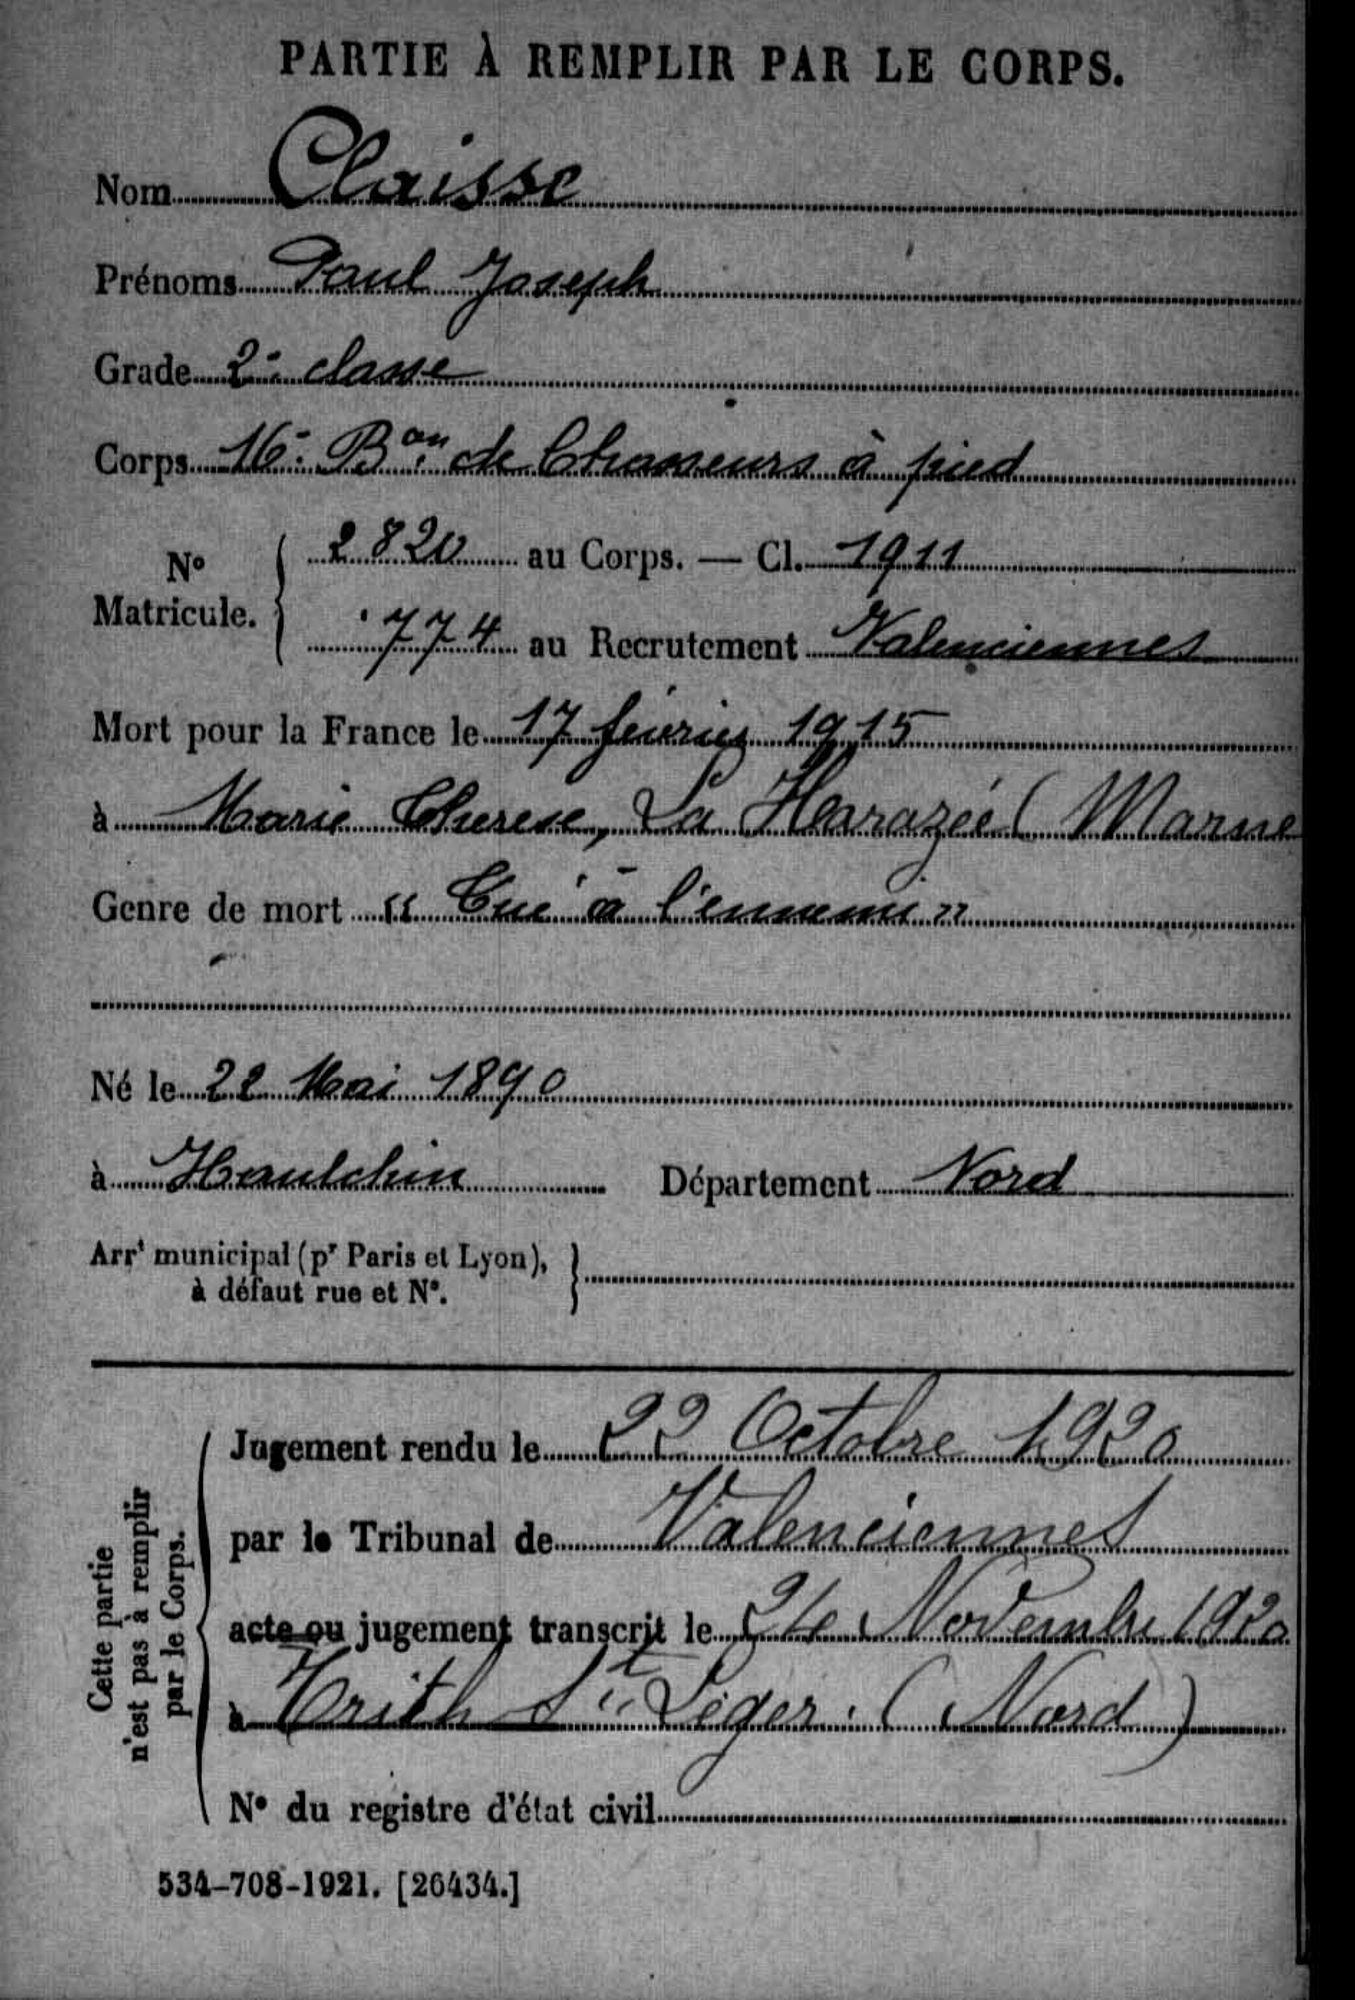 PARTIE À REMPLIR PAR LE CORPS.
Nom Claisse
Prénoms Paul Joseph
Grade 2e classe
Corps 16e Bon de Chasseurs à pied
No Matricule. 2820 au Corps. — Cl. 1911
774 au Recrutement Valenciennes
Mort pour la France le 17 février 1915
à Marie Therese, La Harazée (Marne
Genre de mort "Tué à l'ennemi"
Né le 22 Mai 1890
à Haulchin Département Nord
Arrt municipal (pr Paris et Lyon),
à défaut rue et No.
Cette partie
n'est pas à remplir
par le Corps.
Jugement rendu le 22 Octobre 1920
par le Tribunal de Valenciennes
acte ou jugement transcrit le 24 Novembre 1920
à Trith St Léger. (Nord)
No du registre d'état civil
534-708-1921. [26434.]